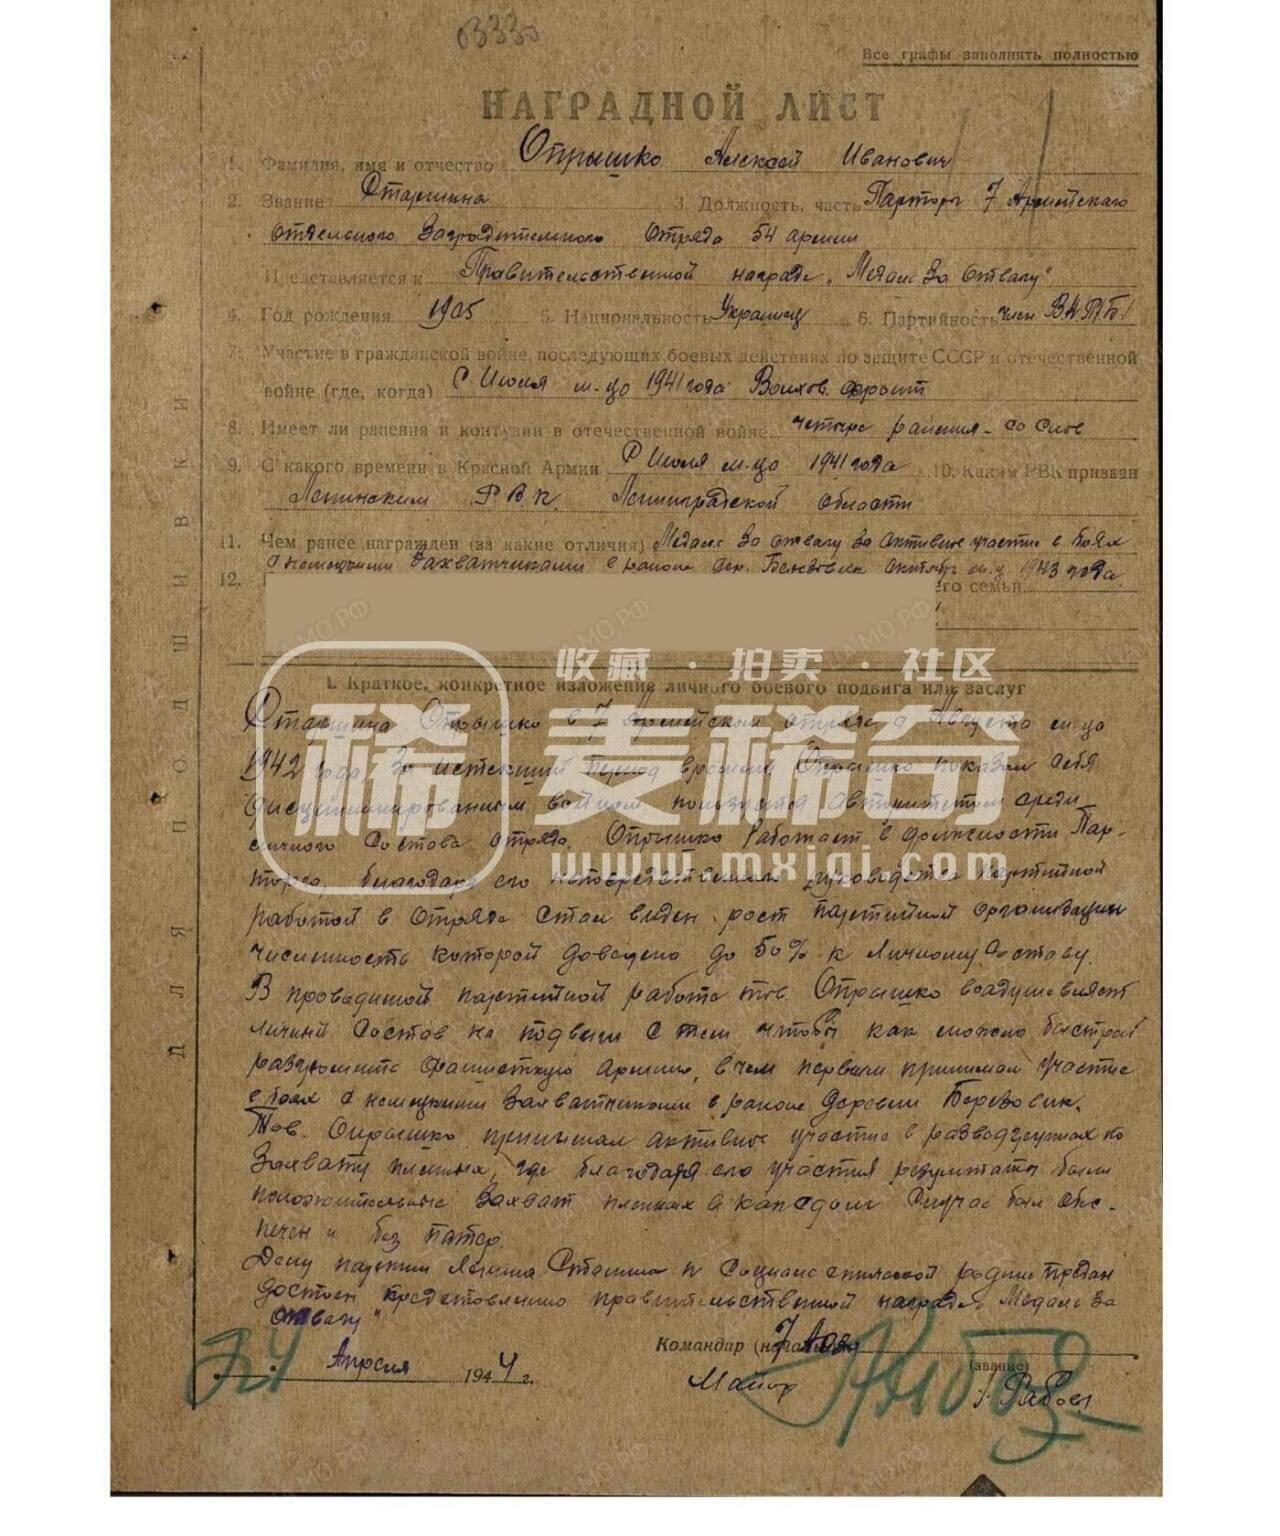 Все графы заполнять полностью
НАГРАДНОЙ ЛИСТ
1. Фамилия, имя и отчество Опрышко Алексей Иванович
2. Звание Старшина 3. Должность, часть Парторг 7 Армейского
отдельного Заградительного Отряда 54 армии
Представляется к Правительственной награде „Медаль За Отвагу"
4. Год рождения 1905 5. Национальность Украинец 6. Партийность член ВКП(Б)
7. Участие в гражданской войне, последующих боевых действиях по защите СССР и отечественной
войне (где, когда) С Июля м-ца 1941 года Волхов. фронт
8. Имеет ли ранения и контузии в отечественной войне четыре ранения - со слов
9. С какого времени в Красной Армии С Июля м-ца 1941 года 10. Каким РВК призван
Ленинским Р.В.К. Ленинградской области
11. Чем ранее награжден (за какие отличия) Медаль За отвагу за активное участие в боях
с немецкими захватчиками в районе дер. октябрь м-ц 1943 года.
12. его семьи
收藏 · 拍卖 · 社区
I. Краткое, конкретное изложение личного боевого подвига или заслуг
Старшина Опрышко в 7 Армейском отряде с Августа м-ца
1942 года За истекший период времени Опрышко показал себя
稀 麦稀奇
дисциплинированным воином пользуется авторитетом среди
личного Состава отряда. Опрышко работает в должности Пар-
www.mxiqi.com
торга, благодаря его непосредственного руководства партийной
работой в Отряде стал виден рост партийной организации
численность которой доведена до 50% к личному Составу.
В проводимой партийной работе тов. Опрышко воодушевляет
личный Состав на подвиги с тем чтобы как можно быстрей
разгромить фашистскую армию, в чем первым принимал участие
в боях с немецкими захватчиками в районе деревни Березовик.
Тов. Опрышко принимал активное участие в разведгруппах по
Захвату пленных, где благодаря его участия результаты были
положительные Захват пленных в каждом Случае был обес-
печен и без потер.
Делу партии Ленина Сталина и Социалистической родине предан
достоин представлению правительственной награде Медаль За
Отвагу"
Командир (начальник) 7 Аозо
24 Апреля 1944 г.
(звание)
Майор
ДЛЯ ПОДШИВКИ